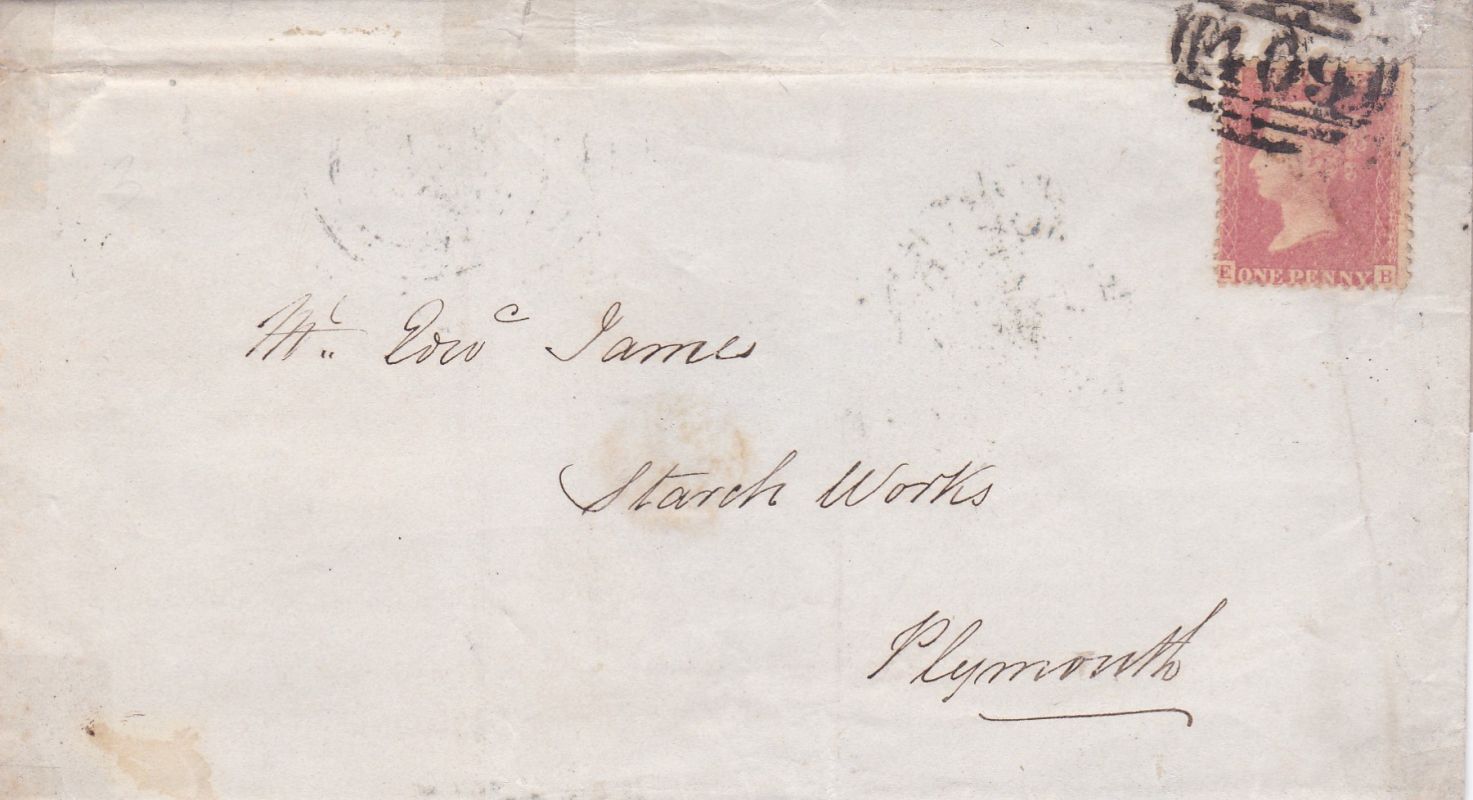 409
E ONE PENNY B
Mr. Edwd James
Starch Works
Plymouth